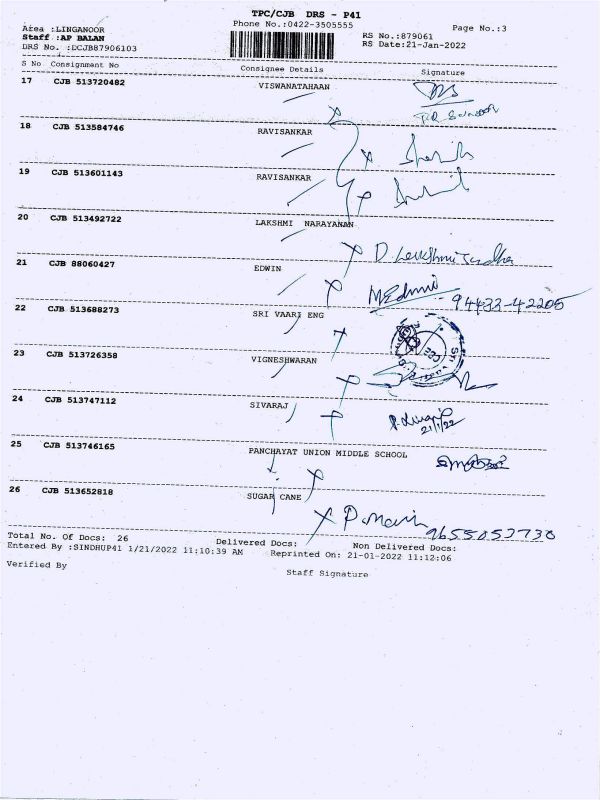 TPC/CJB DRS - P41
Area :LINGANOOR Phone No.:0422-3505555 Page No.:3
Staff :AP BALAN RS No.:879061
DRS No. :DCJB87906103 RS Date:21-Jan-2022
S No Consignment No Consignee Details Signature
17 CJB 513720482 VISWANATAHAAN
18 CJB 513584746 RAVISANKAR
19 CJB 513601143 RAVISANKAR
20 CJB 513492722 LAKSHMI NARAYANAN
21 CJB 88060427 EDWIN
94433-42205
22 CJB 513688273 SRI VAARI ENG
23 CJB 513726358 VIGNESHWARAN
24 CJB 513747112 SIVARAJ
21/1/22
25 CJB 513746165 PANCHAYAT UNION MIDDLE SCHOOL
26 CJB 513652818 SUGAR CANE
9655053730
Total No. Of Docs: 26 Delivered Docs: Non Delivered Docs:
Entered By :SINDHUP41 1/21/2022 11:10:39 AM Reprinted On: 21-01-2022 11:12:06
Verified By Staff Signature